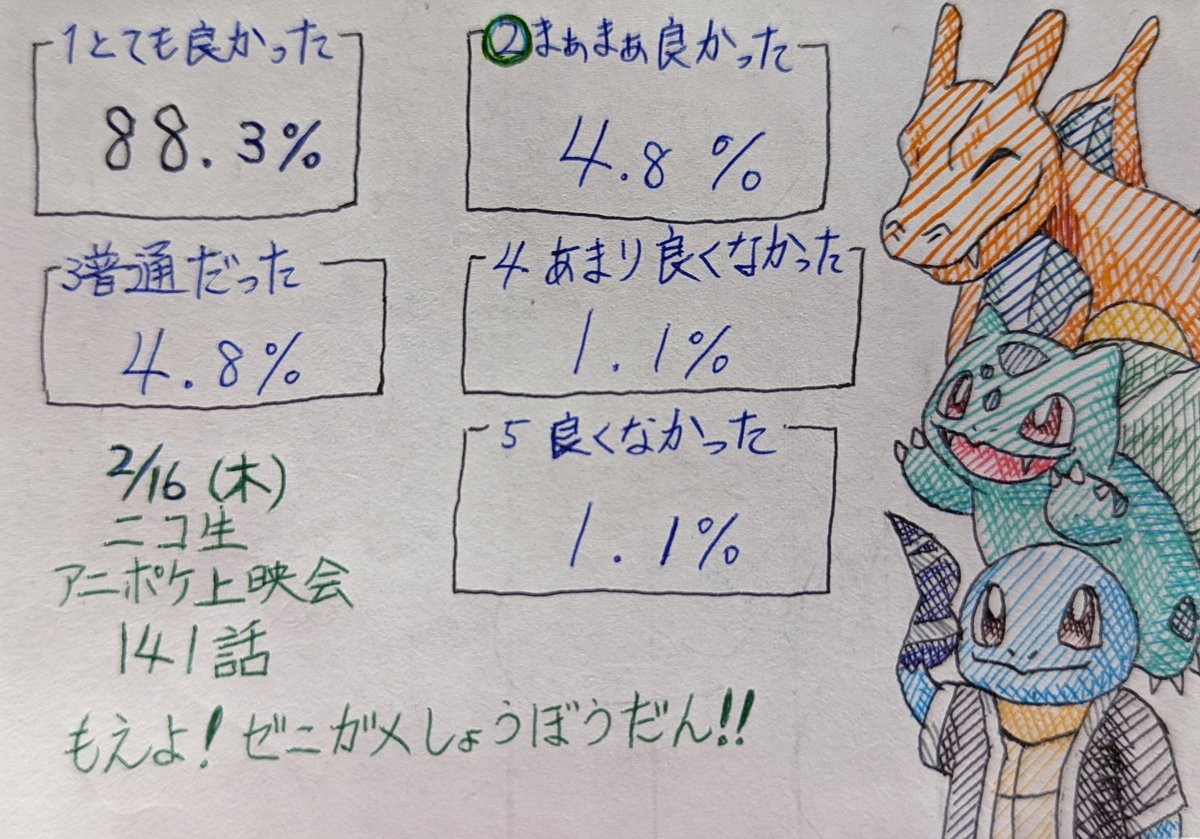 1とても良かった
88.3%
②まぁまぁ良かった
4.8%
3普通だった
4.8%
4 あまり良くなかった
1.1%
5 良くなかった
1.1%
2/16 (木)
ニコ生
アニポケ上映会
141話
もえよ!ゼニガメしょうぼうだん!!